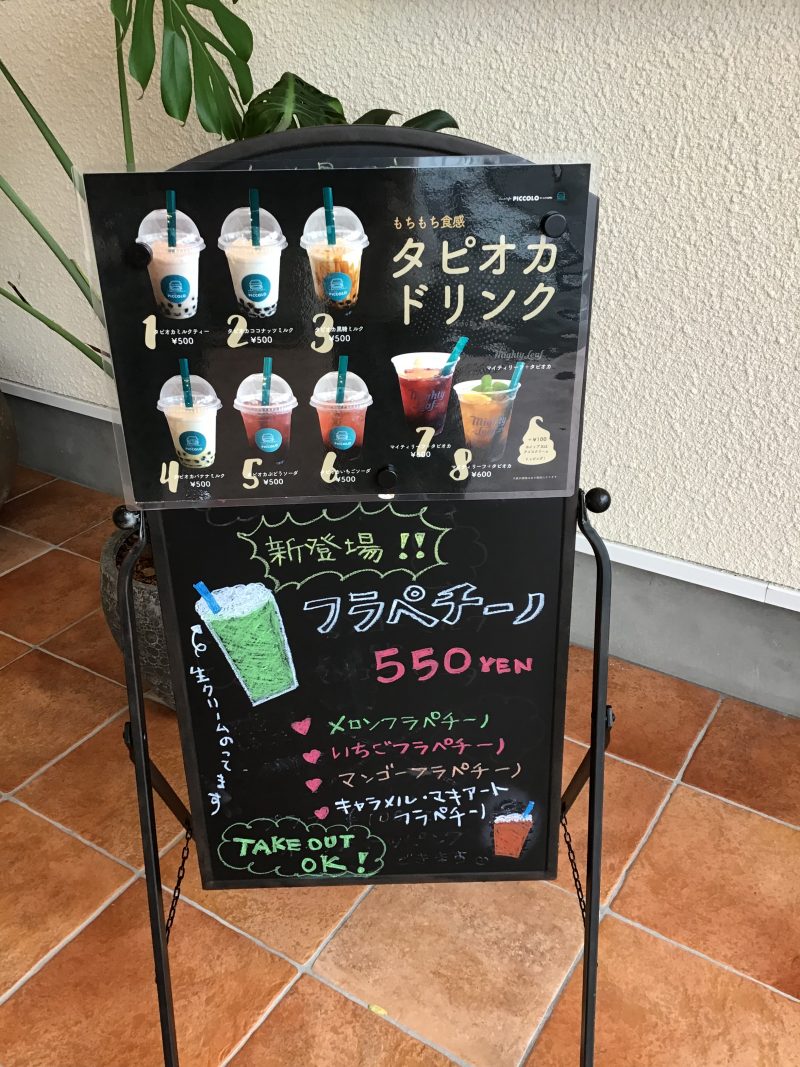 PICCOLO
もちもち食感
タピオカ
ドリンク
1
タピオカミルクティー
¥500
2
タピオカココナッツミルク
¥500
3
タピオカ黒糖ミルク
¥500
4
タピオカバナナミルク
¥500
5
タピオカぶどうソーダ
¥500
6
タピオカいちごソーダ
¥500
Mighty Leaf
マイティリーフ+タピオカ
7
マイティリーフ+タピオカ
¥600
8
マイティリーフ+タピオカ
¥600
+¥100
新登場!!
フラペチーノ
550 YEN
生クリームのってます
メロンフラペチーノ
いちごフラペチーノ
マンゴーフラペチーノ
キャラメル・マキアート
フラペチーノ
TAKE OUT
OK!